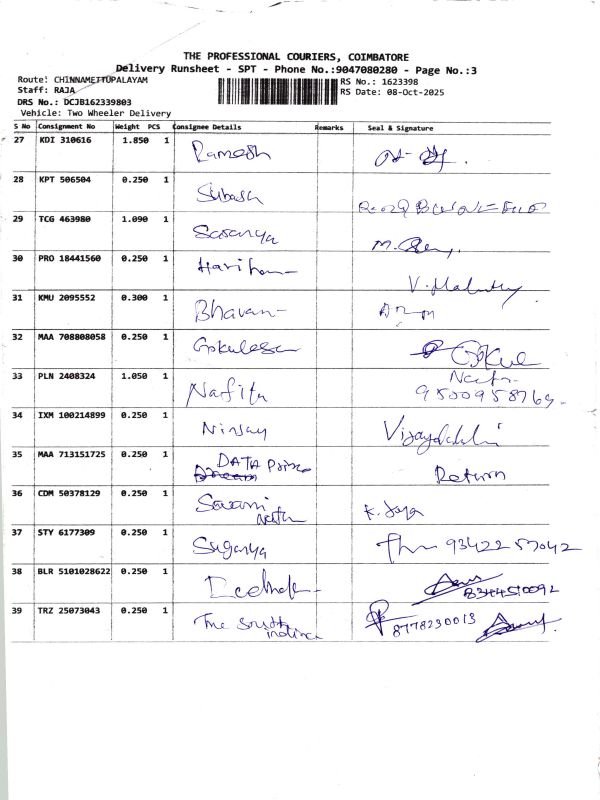 THE PROFESSIONAL COURIERS, COIMBATORE
Delivery Runsheet - SPT - Phone No.:9047080280 - Page No.:3
Route: CHINNAMETTUPALAYAM RS No.: 1623398
Staff: RAJA RS Date: 08-Oct-2025
DRS No.: DCJB162339803
Vehicle: Two Wheeler Delivery
S No Consignment No Weight PCS Consignee Details Remarks Seal & Signature
27 KDI 310616 1.850 1 Ramesh
28 KPT 506504 0.250 1 Subash
29 TCG 463980 1.090 1 Saranya
30 PRO 18441560 0.250 1 Hariharan V. Malathy
31 KMU 2095552 0.300 1 Bhavan
32 MAA 708808058 0.250 1 Gokulesh Gokul
33 PLN 2408324 1.050 1 Nafita
9500958769
34 IXM 100214899 0.250 1
35 MAA 713151725 0.250 1 DATA Point Return
36 CDM 50378129 0.250 1 K. Jaya
37 STY 6177309 0.250 1 Suganya 9342257042
38 BLR 5101028622 0.250 1 8344510092
39 TRZ 25073043 0.250 1 The South 8778230013
Indian